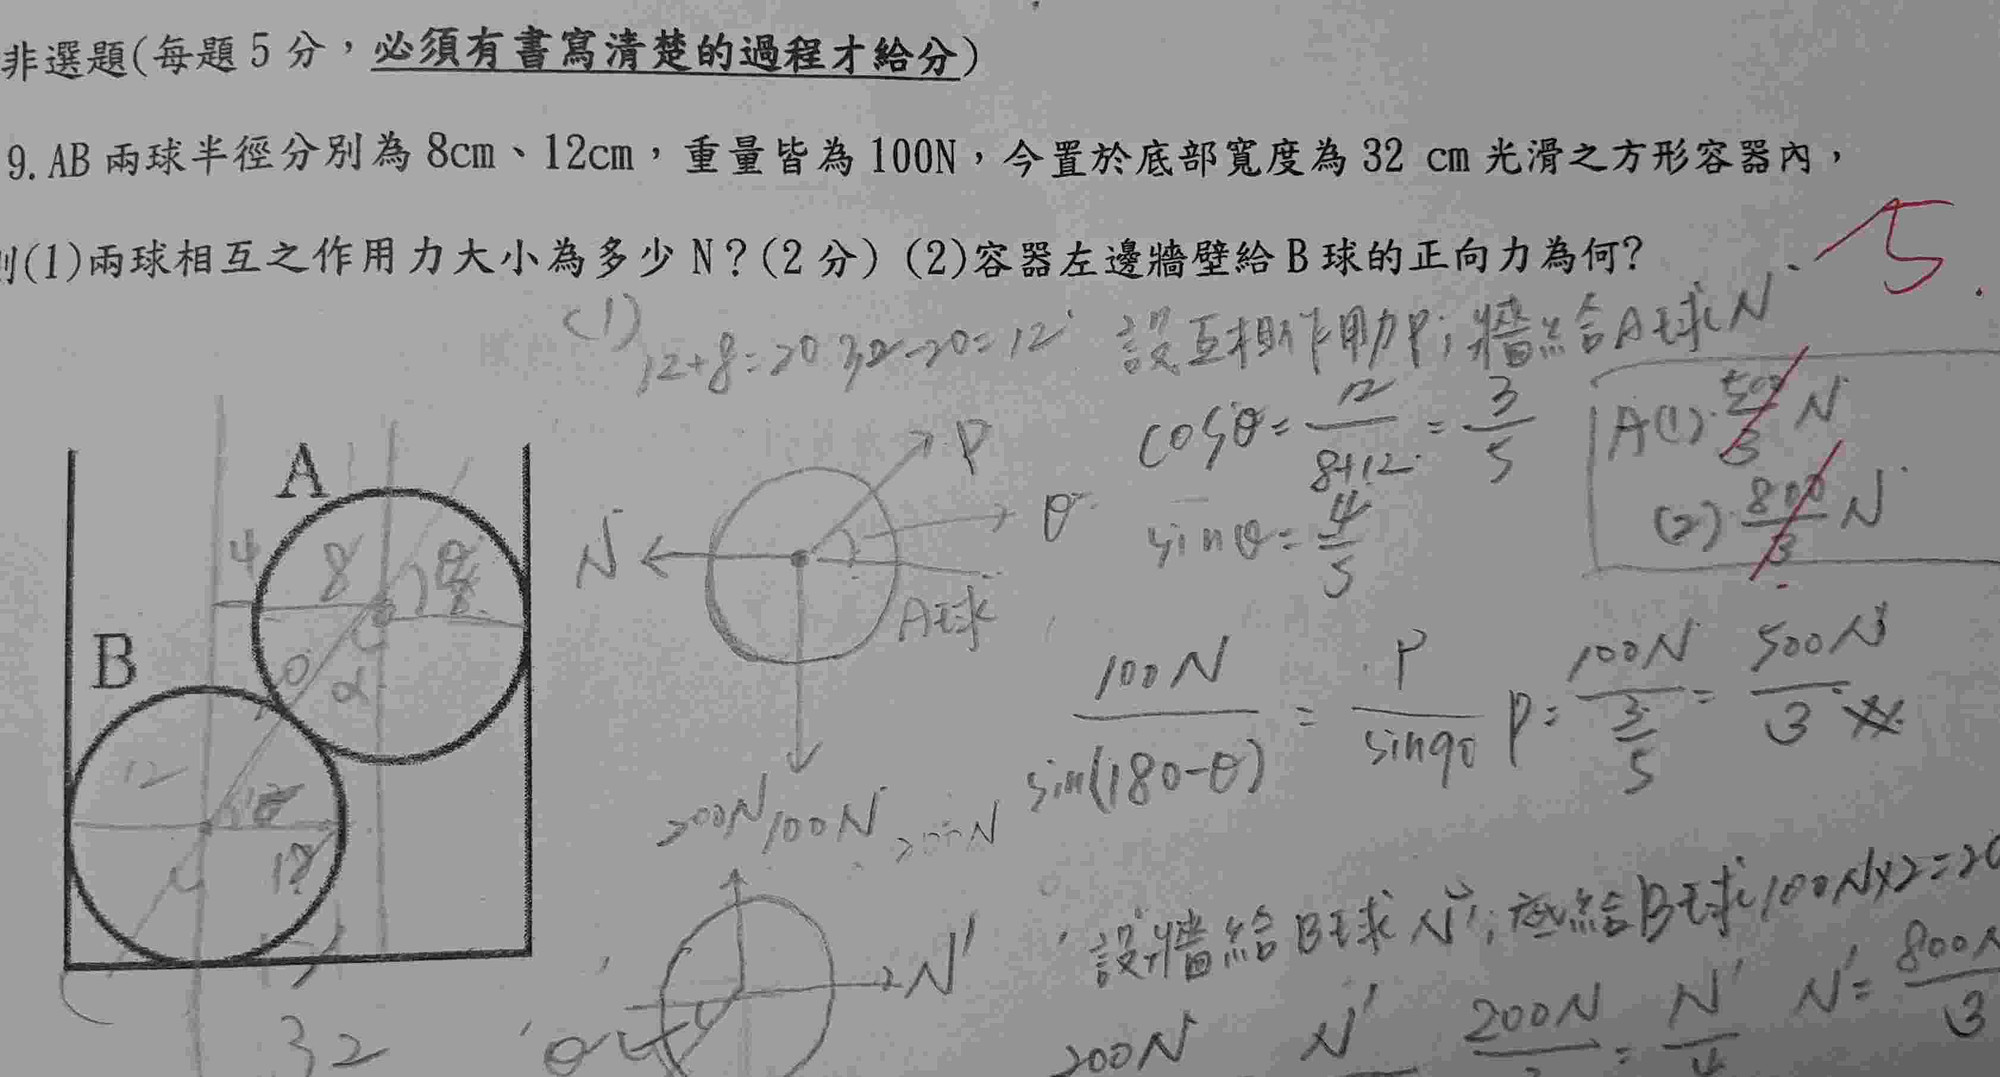 非選題(每題5分，必須有書寫清楚的過程才給分)
9. AB兩球半徑分別為8cm、12cm，重量皆為100N，今置於底部寬度為32 cm光滑之方形容器內，
則(1)兩球相互之作用力大小為多少N？(2分) (2)容器左邊牆壁給B球的正向力為何？
5.
(1) 12+8=20 32-20=12 設互相作用力P；牆給A球N
cosθ= 12/8+12 = 3/5
sinθ= 4/5
A(1) 500/3 N
(2) 800/3 N
A
4 8
B
α
12
12
32
P
N
θ
A球
100N
100N/sin(180-θ) = P/sin90 P= 100N/(3/5) = 500N/3
200N
200N
N'
設牆給B球N'；底給B球100N×2=20
200N N' 200N = N'/4 N'= 800N/3